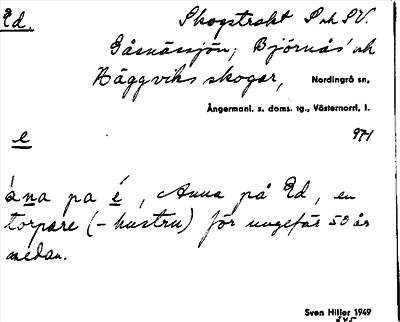 Ed. Skogstrakt S och SV.
Gåsnässjön; Björnås' och
Häggviks skogar, Nordingrå sn,
Ångermanl. s. doms. tg., Västernorrl. l.
e 971
ána pa é, Anna på Ed, en
torpare (-hustru) för ungefär 50 år
sedan.
Sven Hiller 1949